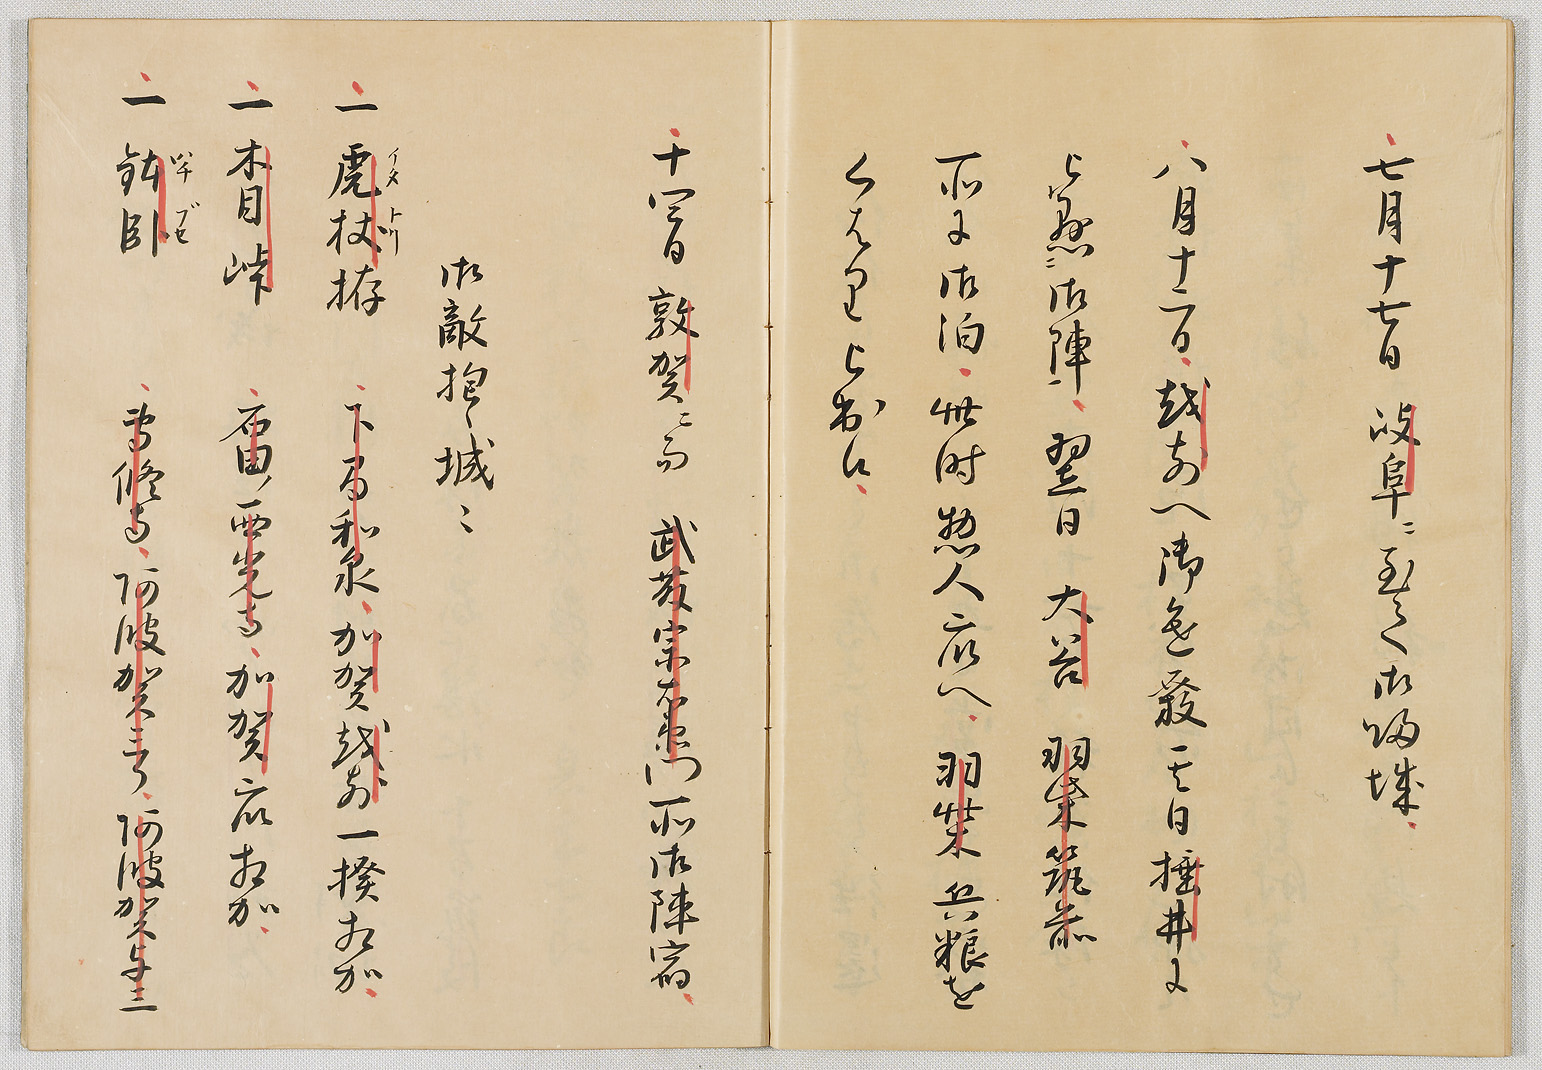 七月十七日岐阜ニ至て御帰城
八月十二日越前へ御進發其日捶井に
被懸御陣翌日大谷羽柴筑前
所に御泊此時惣人衆へ羽柴兵粮を
くはり被出候
十四日敦賀ニ而武藤宗右衛門所御陣宿
御敵抱之城ニ
一虎杖拵イタトリ 下間和泉加賀越前一揆相加
一木目峠 石田西光寺加賀衆相加
一鉢臥ハチブセ 専修寺阿波賀三郎阿波賀与三